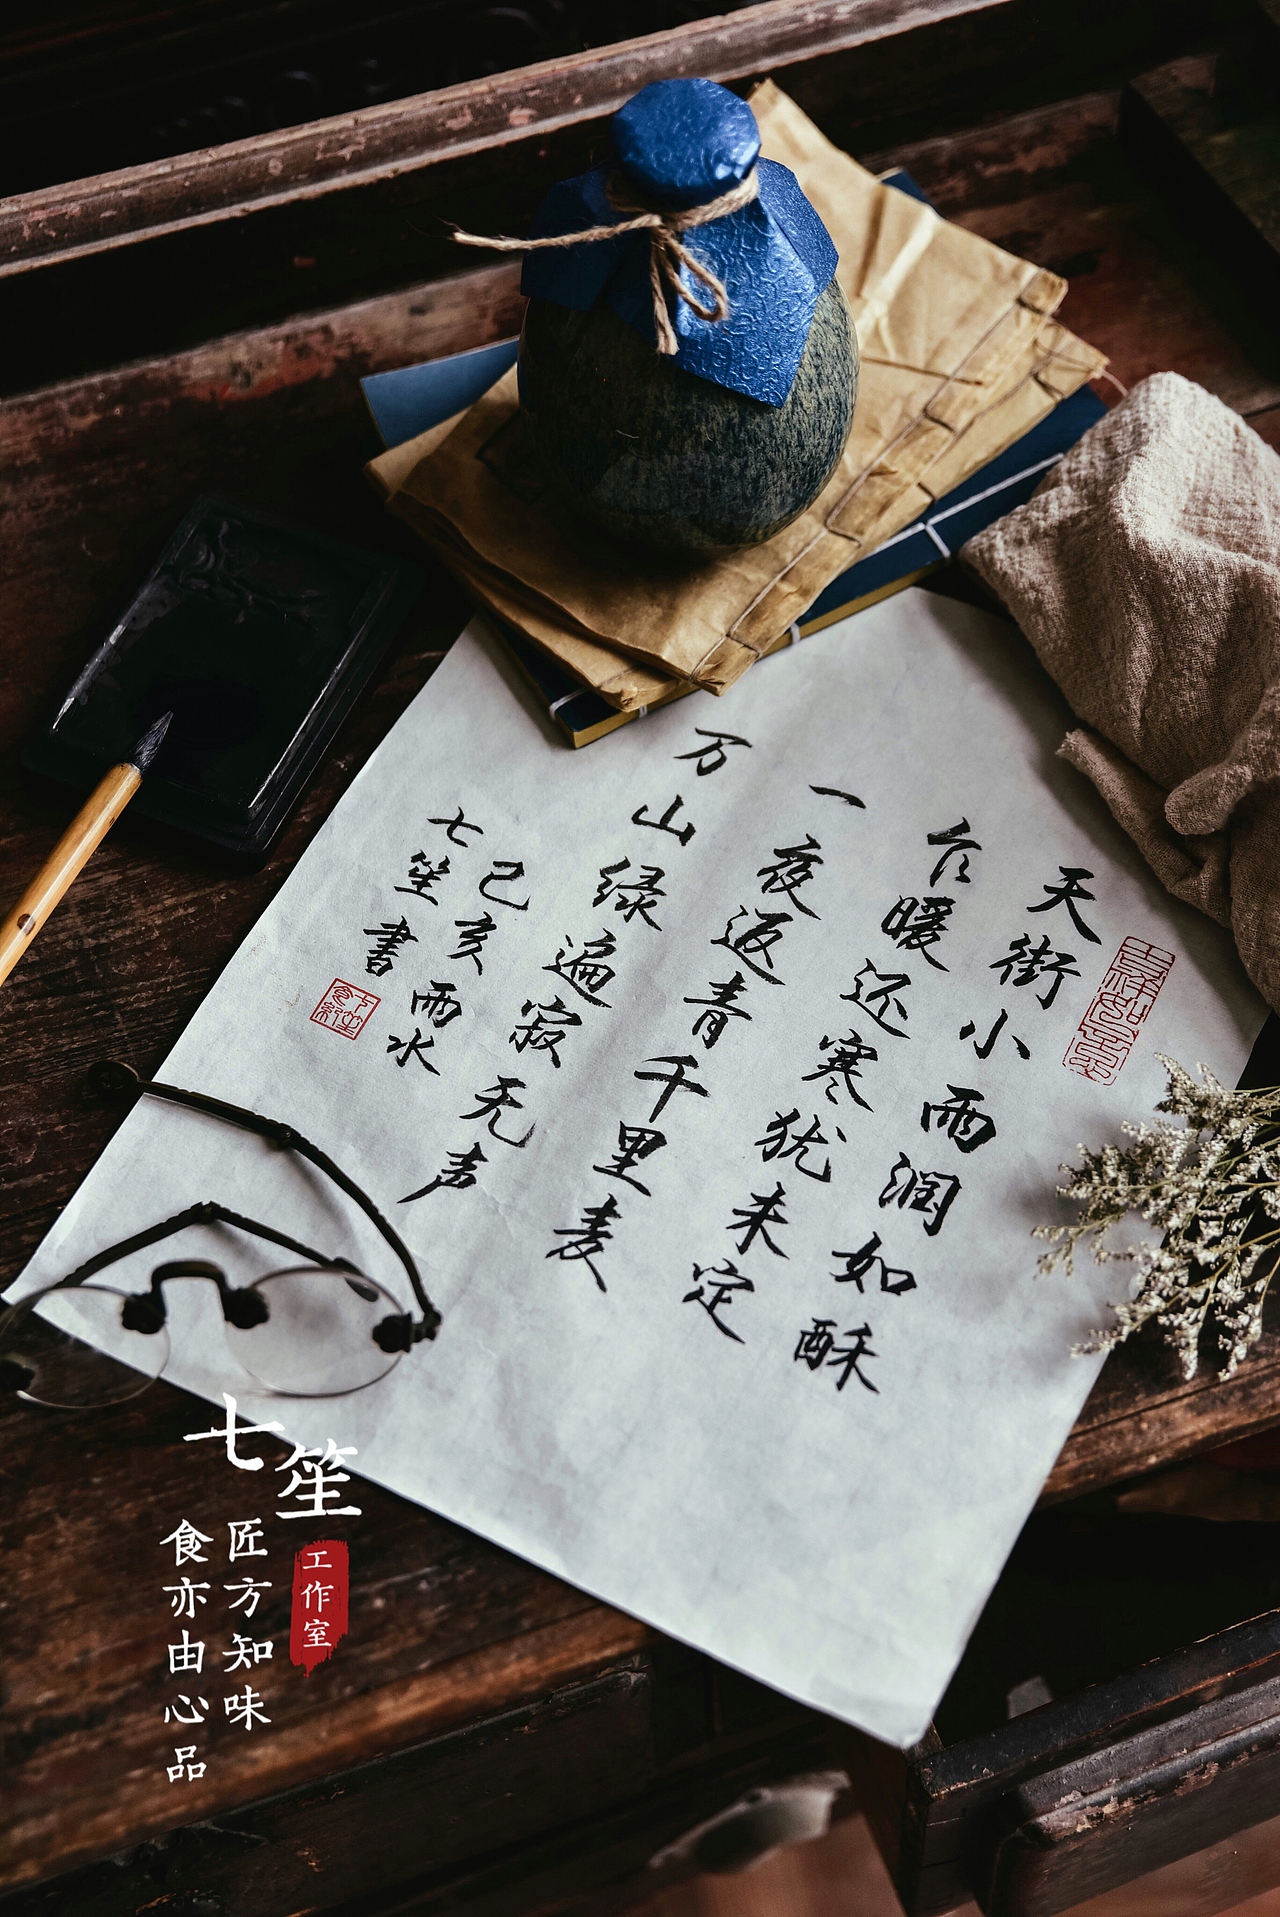 天街小雨润如酥
乍暖还寒犹未定
一夜返青千里麦
万山绿遍寂无声
己亥雨水
七笙書
七笙
工作室
匠方知味
食亦由心品